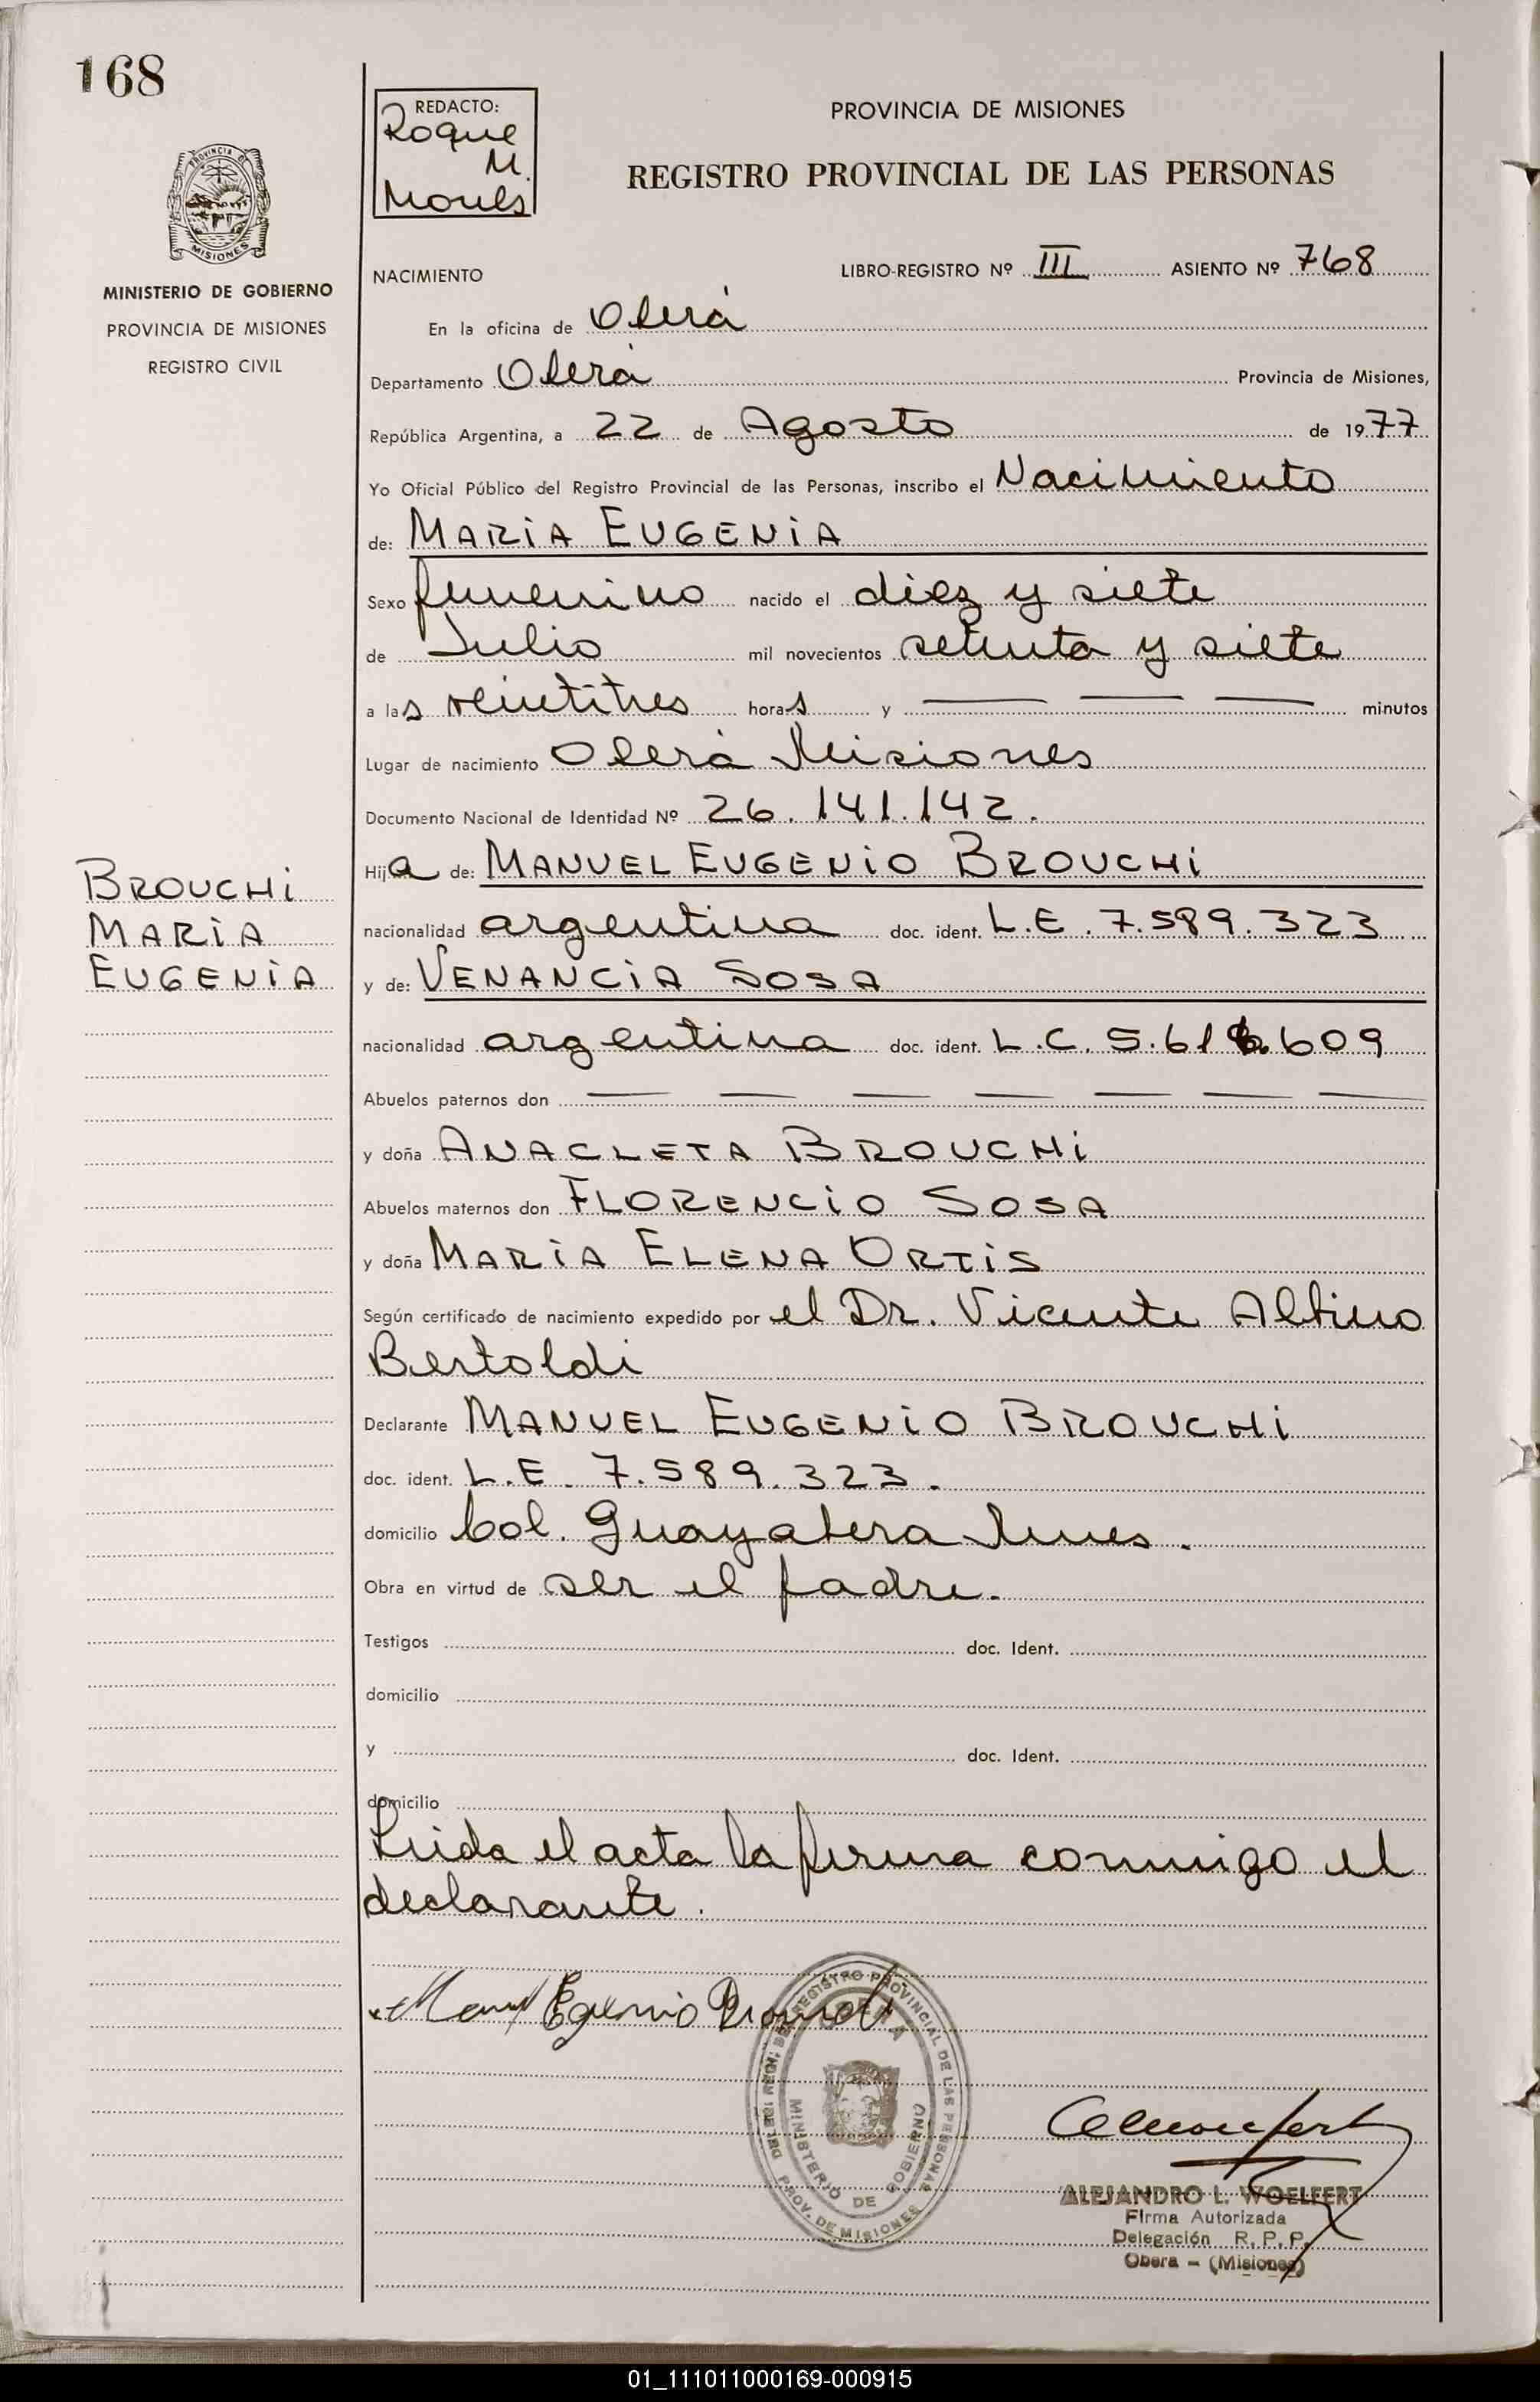 168
REDACTO:
Roque
M.
PROVINCIA DE MISIONES
REGISTRO PROVINCIAL DE LAS PERSONAS
MISIONES
MINISTERIO DE GOBIERNO
PROVINCIA DE MISIONES
REGISTRO CIVIL
NACIMIENTO
LIBRO-REGISTRO Nº III ASIENTO Nº 768
En la oficina de Oberá
Departamento Oberá Provincia de Misiones,
República Argentina, a 22 de Agosto de 1977
Yo Oficial Público del Registro Provincial de las Personas, inscribo el Nacimiento
de: MARIA EUGENIA
Sexo femenino nacido el diez y siete
de Julio mil novecientos setenta y siete
a las veintitres horas y — — — minutos
Lugar de nacimiento Oberá Misiones
Documento Nacional de Identidad Nº 26.141.142.
Hija de: MANUEL EUGENIO BROUCHI
BROUCHI
MARIA
EUGENIA
nacionalidad argentina doc. ident. L.E. 7.589.323
y de: VENANCIA SOSA
nacionalidad argentina doc. ident. L.C. 5.61 609
Abuelos paternos don — — — — — — —
y doña ANACLETA BROUCHI
Abuelos maternos don FLORENCIO SOSA
y doña MARIA ELENA ORTIS
Según certificado de nacimiento expedido por el Dr. Vicente Albino
Bertoldi
Declarante MANUEL EUGENIO BROUCHI
doc. ident. L.E. 7.589.323.
domicilio Col. Guayabera Mnes.
Obra en virtud de ser el padre.
Testigos doc. Ident.
domicilio
y doc. Ident.
domicilio
Leida el acta la firma conmigo el
declarante.
Manuel Egenio
REGISTRO PROVINCIAL DE LAS PERSONAS
MINISTERIO DE GOBIERNO
PROV. DE MISIONES
ALEJANDRO L. WOELFERT
Firma Autorizada
Delegación R.P.P.
Obera - (Misiones)
01_111011000169-000915